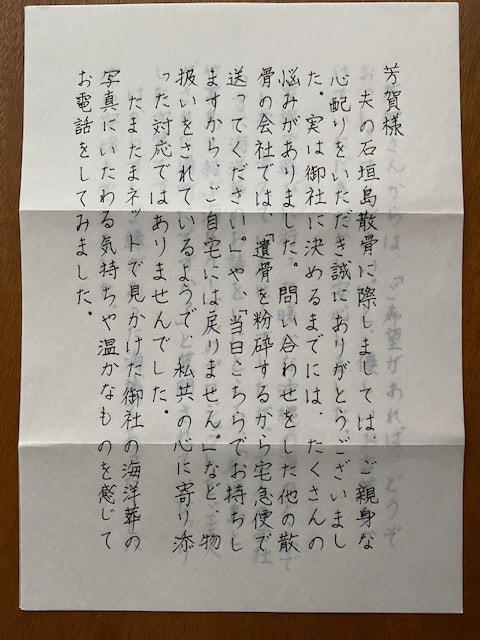 芳賀様
　夫の石垣島散骨に際しましては、ご親身な
心配りをいただき誠にありがとうございまし
た。実は御社に決めるまでには、たくさんの
悩みがありました。問い合わせをした他の散
骨の会社では、「遺骨を粉砕するから宅急便で
送ってください。」や、「当日こちらでお持ちし
ますから、ご自宅には戻りません。」など、物
扱いをされているようで、私共の心に寄り添
った対応ではありませんでした。
　たまたまネットで見かけた御社の海洋葬の
写真にいたわる気持ちや温かなものを感じて
お電話をしてみました。